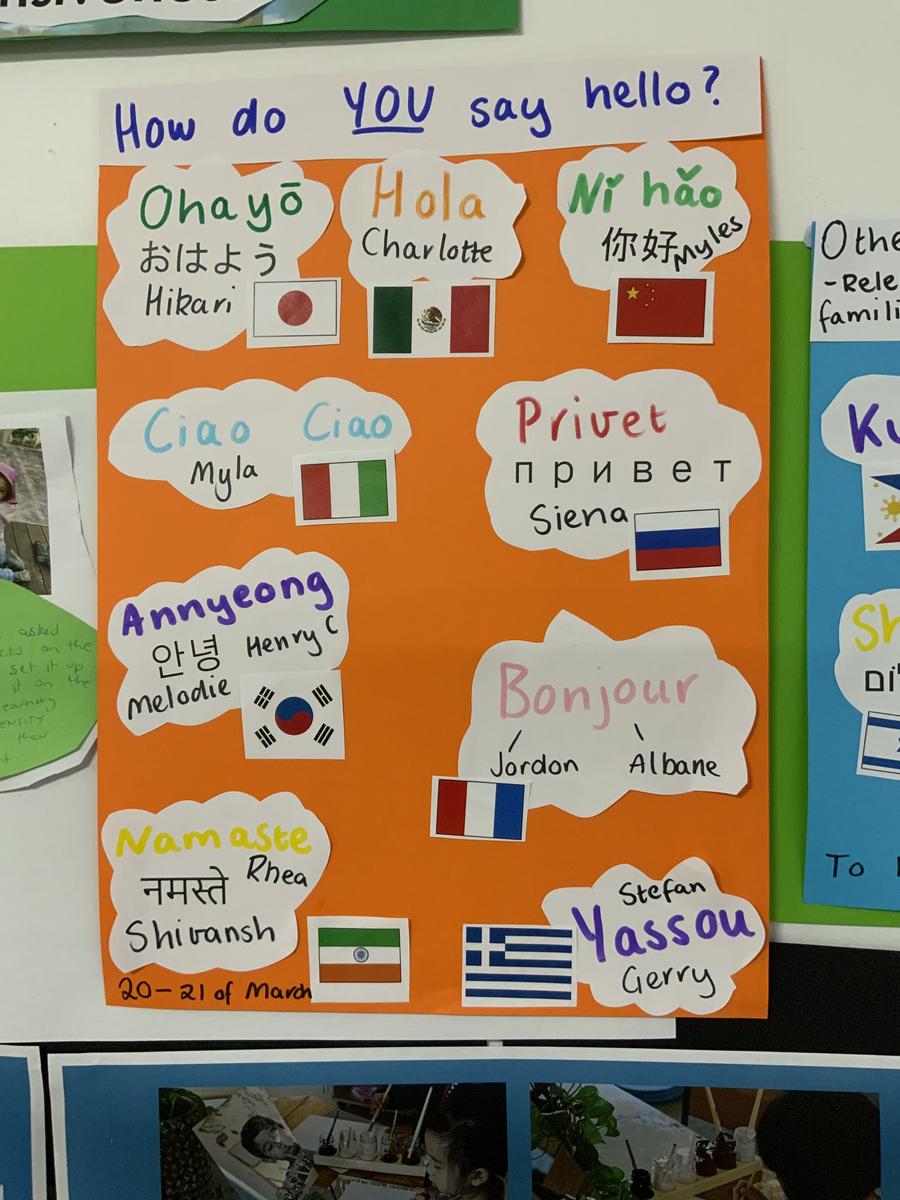 How do YOU say hello?
Ohayō
おはよう
Hikari
Hola
Charlotte
Nǐ hǎo
你好 Myles
Ciao Ciao
Myla
Privet
привет
Siena
Annyeong
안녕 Henry C
Melodie
Bonjour
Jordon Albane
Namaste
नमस्ते Rhea
Shivansh
Stefan
Yassou
Gerry
20-21 of March
Othe
-Rele
famili
Ku
Sh
To
asked
on the
set it up
it on the
their